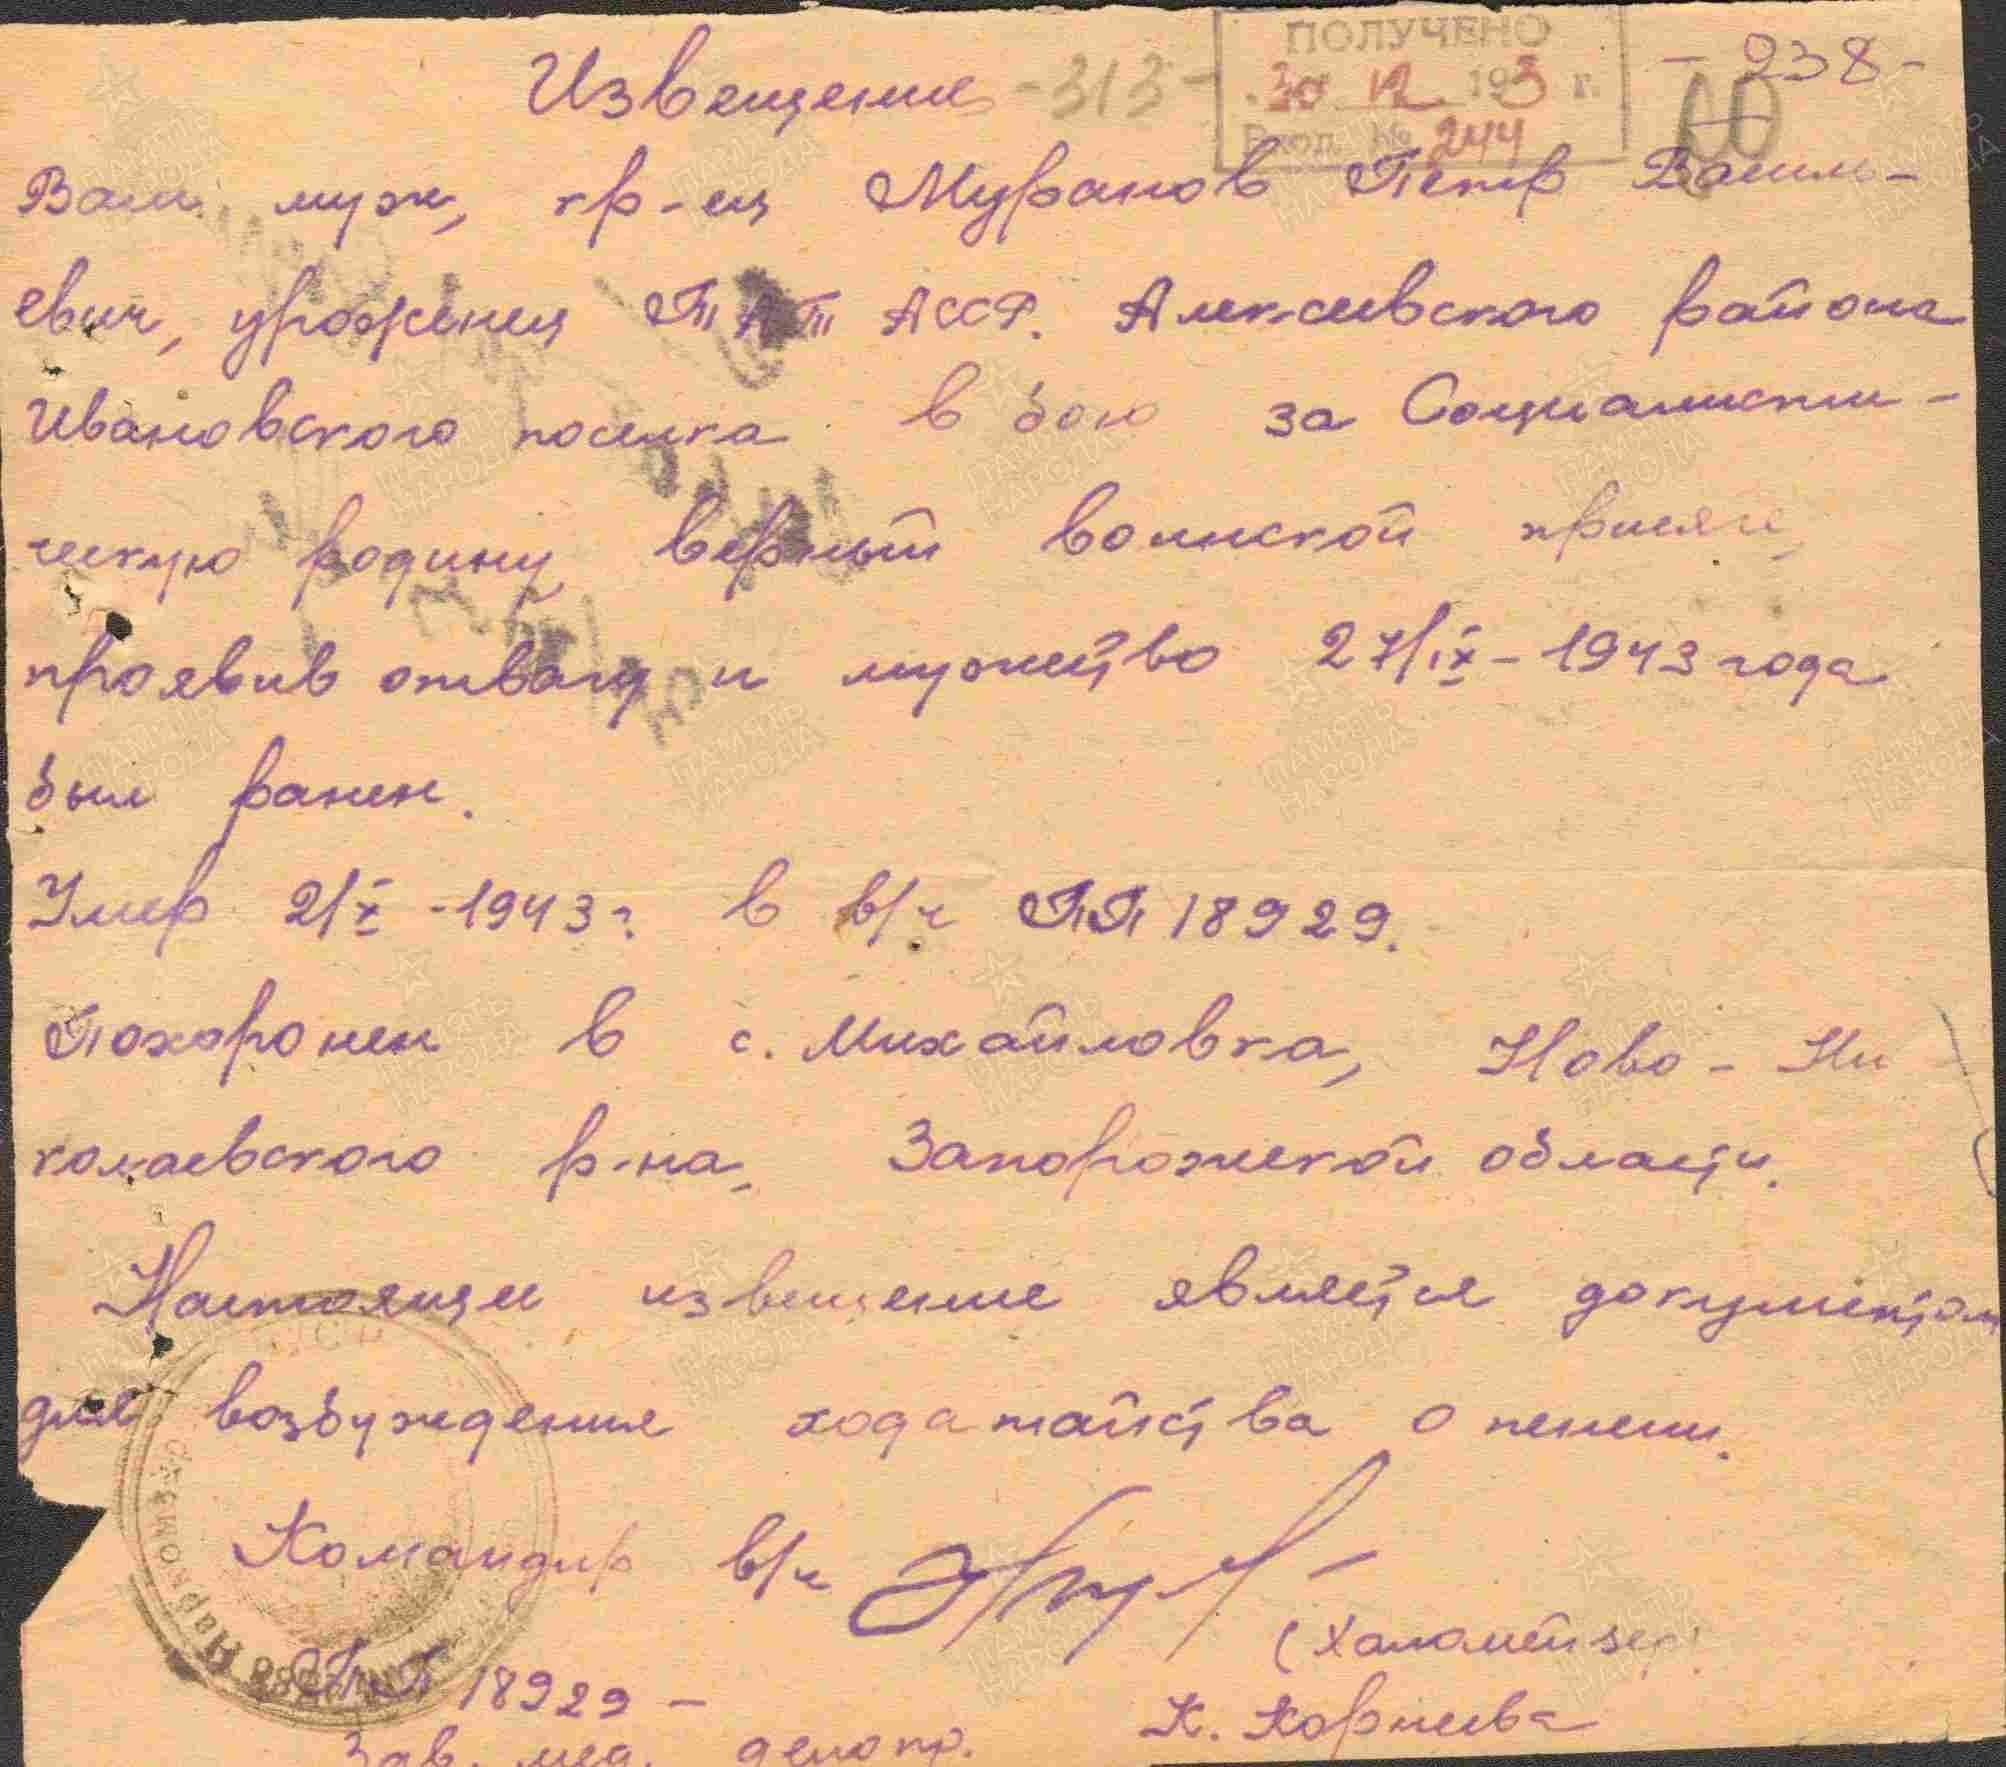 ПОЛУЧЕНО
Извещение -313- 30 12 1943 г. -238-
Вход. № 244
Ваш муж, кр-ец Муранов Петр Василь-
евич, уроженец ТАТ АССР. Алексеевского района
Ивановского поселка в бою за Социалисти-
ческую родину, верный воинской присяге,
проявив отвагу и мужество 27/IX-1943 года
был ранен.
Умер 2/X-1943 г. в в/ч ПП 18929.
Похоронен в с. Михайловка, Ново-Ни
колаевского р-на, Запорожской области.
Настоящее извещение является документом
для возбуждения ходатайства о пенсии.
Командир в/ч
(Халамейзер)
ПП 18929 -
К. Корнеева
Зав. мед. делопр.
Нарком